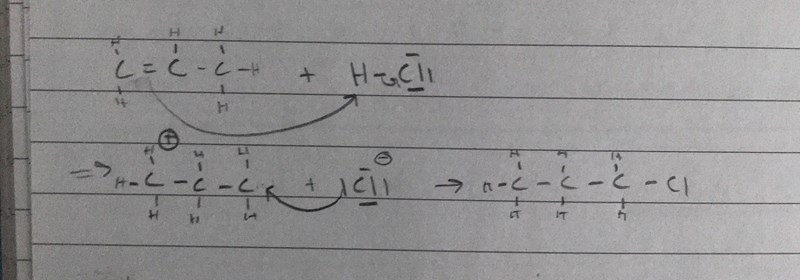 H H H
C = C - C - H + H - Cl
H H
⊕ ⊖
H H H H H H
=> H - C - C - C + Cl → H - C - C - C - Cl
H H H H H H